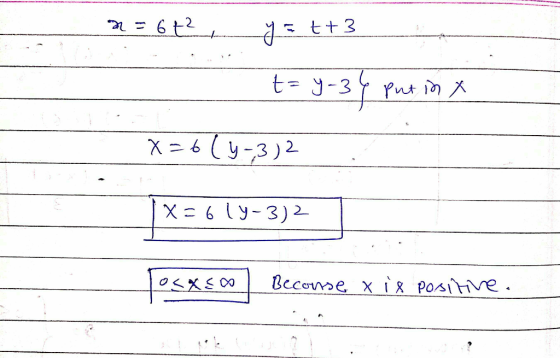 x = 6t², y = t+3
t = y-3} put in x
x = 6(y-3)2
x = 6(y-3)2
0≤x≤∞ Becouse x is positive.